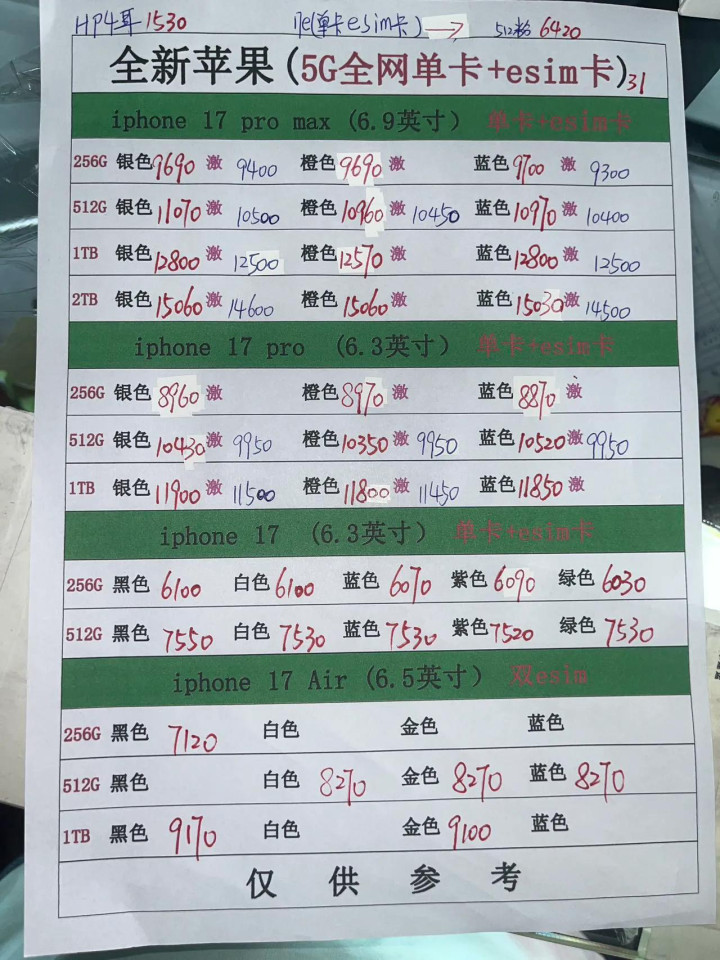 HP4耳1530 17e(单卡esim卡) → 512粉 6420
全新苹果(5G全网单卡+esim卡)31
iphone 17 pro max (6.9英寸) 单卡+esim卡
256G 银色9690 激 9400 橙色9690 激 蓝色9700 激 9300
512G 银色11070 激 10500 橙色10960 激 10450 蓝色10970 激 10400
1TB 银色12800 激 12500 橙色12570 激 蓝色12800 激 12500
2TB 银色15060 激 14600 橙色15060 激 蓝色15030 激 14500
iphone 17 pro (6.3英寸) 单卡+esim卡
256G 银色8960 激 橙色8970 激 蓝色8870 激
512G 银色10430 激 9950 橙色10350 激 9950 蓝色10520 激 9950
1TB 银色11900 激 11500 橙色11800 激 11450 蓝色11850 激
iphone 17 (6.3英寸) 单卡+esim卡
256G 黑色 6100 白色 6100 蓝色 6070 紫色 6090 绿色 6030
512G 黑色 7550 白色 7530 蓝色 7530 紫色 7520 绿色 7530
iphone 17 Air (6.5英寸) 双esim
256G 黑色 7120 白色 金色 蓝色
512G 黑色 白色 8270 金色 8270 蓝色 8270
1TB 黑色 9170 白色 金色 9100 蓝色
仅 供 参 考